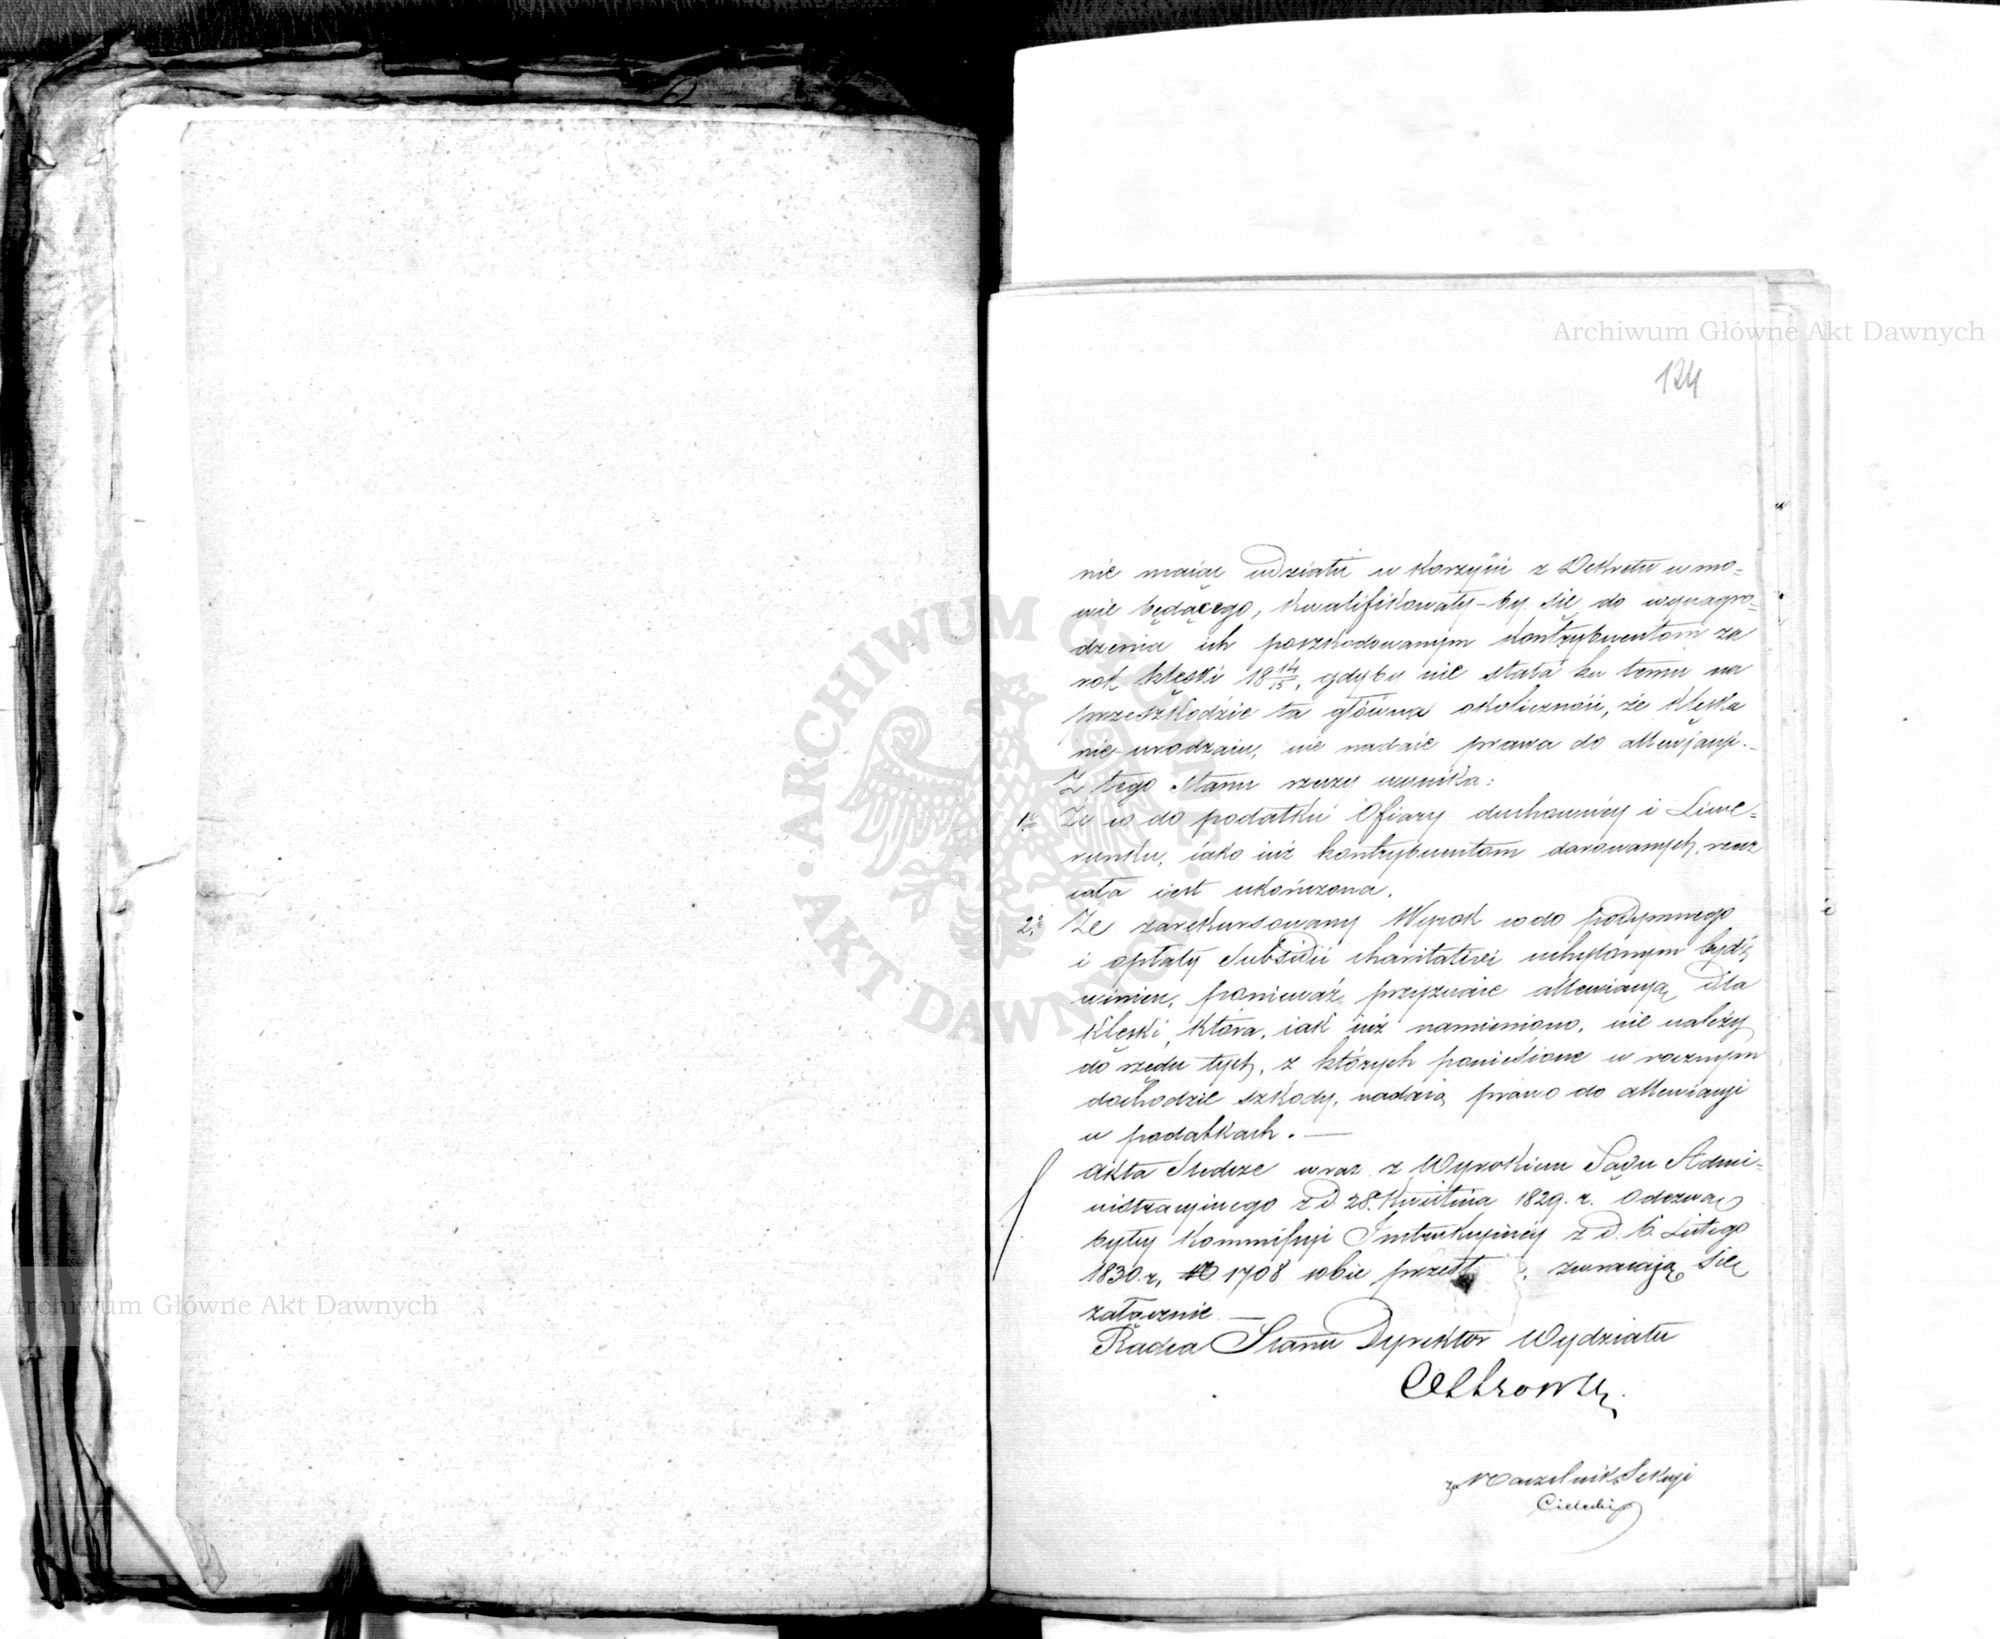 Archiwum Główne Akt Dawnych
124
nie maiąc udziału w korzyści z Dekretu w mo-
wie będącego, kwalifikowały-by się do wynagro-
dzenia ich poszkodowanym kontrybuentom za
rok klęski 18 14/15, gdyby nie stała ku temu na
przeszkodzie ta główna okoliczność, że klęska
nie-urodzaiu, nie nadaie prawa do allewjacyi.-
Z tego stanu rzeczy wynika:
1o Że co do podatku Ofiary duchownéy i Liwe-
runku, iako iuż kontrybuentom darowanych, rzecz
cała iest ukończona.
2o Że zarekursowany Wyrok co do podymnego
i opłaty Subsidii charitativi uchylonym bydź
winien, ponieważ przyznaie allewiacyą dla
klęski, która, iak iuż namieniono, nie należy
do rzędu tych, z których poniesione w rocznym
dochodzie szkody, nadaią prawo do allewiacyi
w podatkach. —
Akta Śledcze wraz z Wyrokiem Sądu Admi-
nistracyinego z d. 28. Kwietnia 1829. r. Odezwą
byłey Kommissyi Instrukcyinéy z d. 6. Lutego
1830. r. No 1708 sobie przesł zwracają się
załącznie —
Radca Stanu Dyrektor Wydziału
za Naczelnik Sekcyi
Cielecki
ARCHIWUM GŁÓWNE AKT DAWNYCH
Archiwum Główne Akt Dawnych